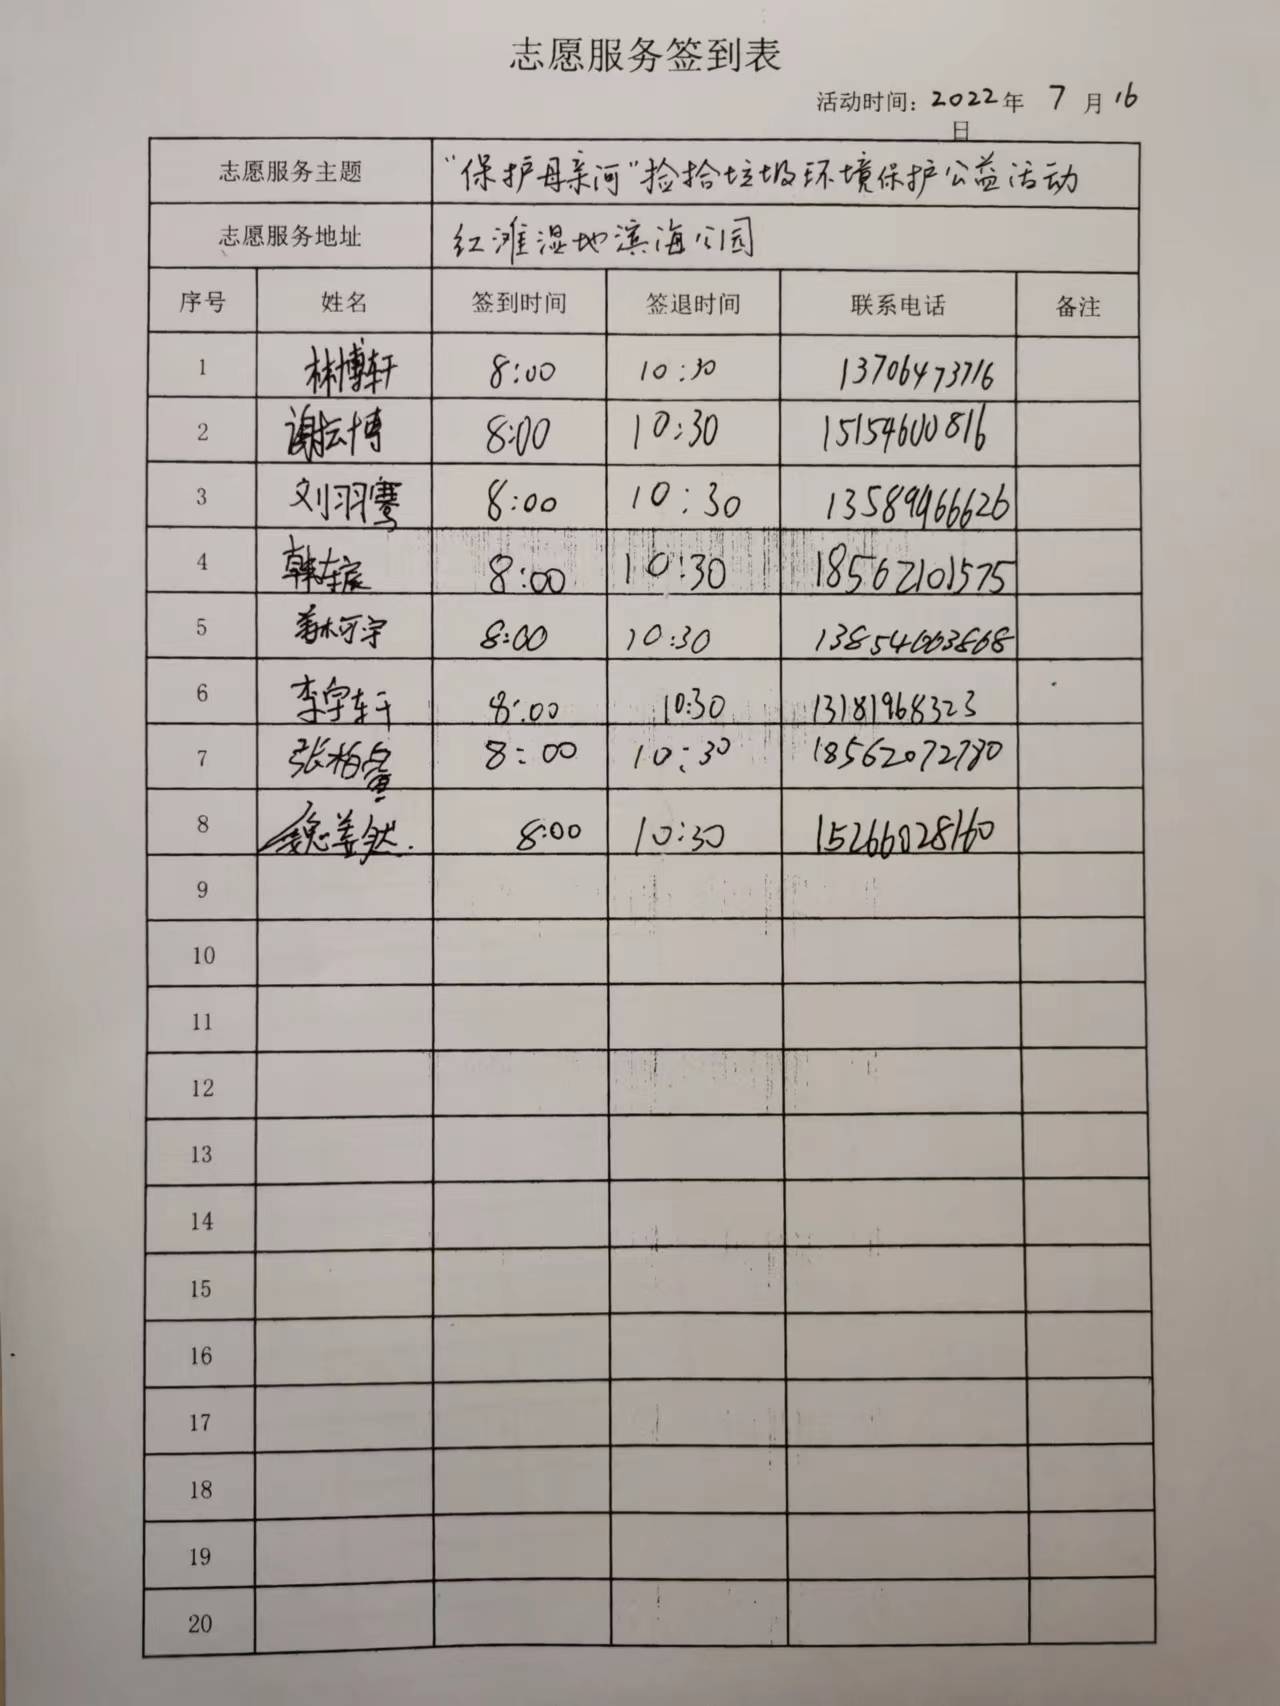 志愿服务签到表
活动时间：2022年 7月16
日
志愿服务主题 “保护母亲河”捡拾垃圾环境保护公益活动
志愿服务地址 红滩湿地滨海公园
序号 姓名 签到时间 签退时间 联系电话 备注
1 林博轩 8:00 10:30 13706473716
2 谢云博 8:00 10:30 15154600816
3 刘羽骞 8:00 10:30 13589966626
4 韩东宸 8:00 10:30 18562101575
5 8:00 10:30 13854603868
6 李宇轩 8:00 10:30 13181968323
7 8:00 10:30 18562072780
8 8:00 10:30 15266028160
9
10
11
12
13
14
15
16
17
18
19
20